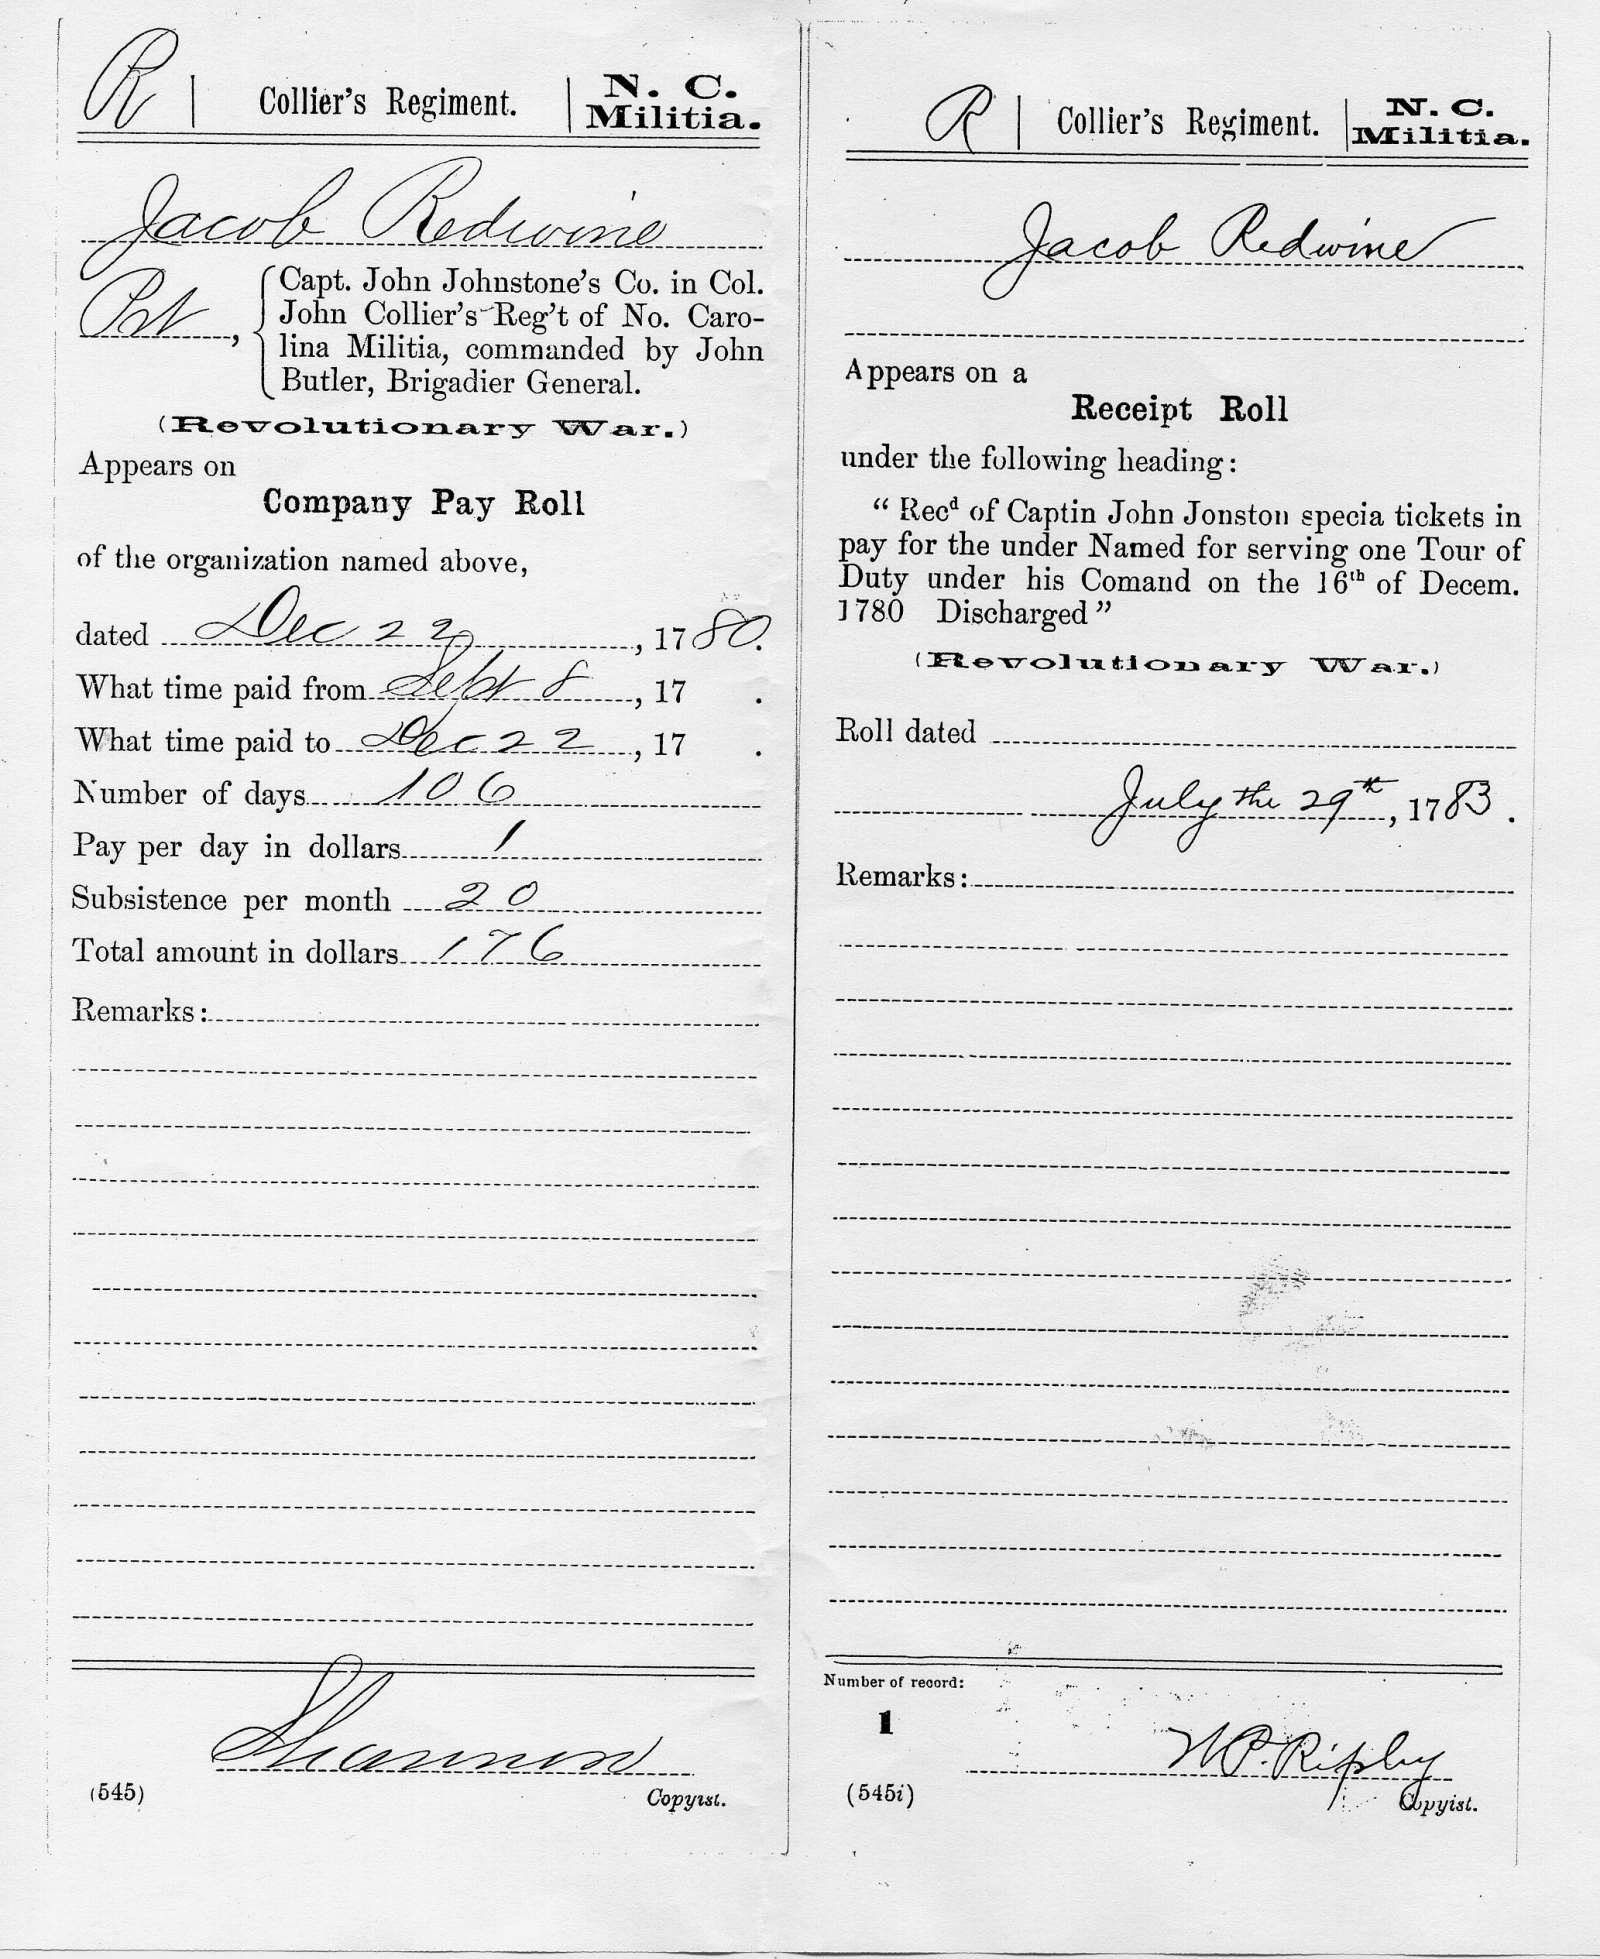 R | Collier's Regiment. | N. C. Militia.
Jacob Redwine
Pvt, { Capt. John Johnstone's Co. in Col.
John Collier's Reg't of No. Caro-
lina Militia, commanded by John
Butler, Brigadier General.
(Revolutionary War.)
Appears on
Company Pay Roll
of the organization named above,
dated Dec 22, 1780.
What time paid from Sept 8, 17 .
What time paid to Dec 22, 17 .
Number of days 106
Pay per day in dollars 1
Subsistence per month 20
Total amount in dollars 176
Remarks:
Shannon
(545) Copyist.
R | Collier's Regiment. | N. C. Militia.
Jacob Redwine
Appears on a
Receipt Roll
under the following heading:
“ Recd of Captin John Jonston specia tickets in
pay for the under Named for serving one Tour of
Duty under his Comand on the 16th of Decem.
1780 Discharged ”
(Revolutionary War.)
Roll dated
July the 29th, 1783.
Remarks:
Number of record:
1
W P. Ripley
(545i) Copyist.